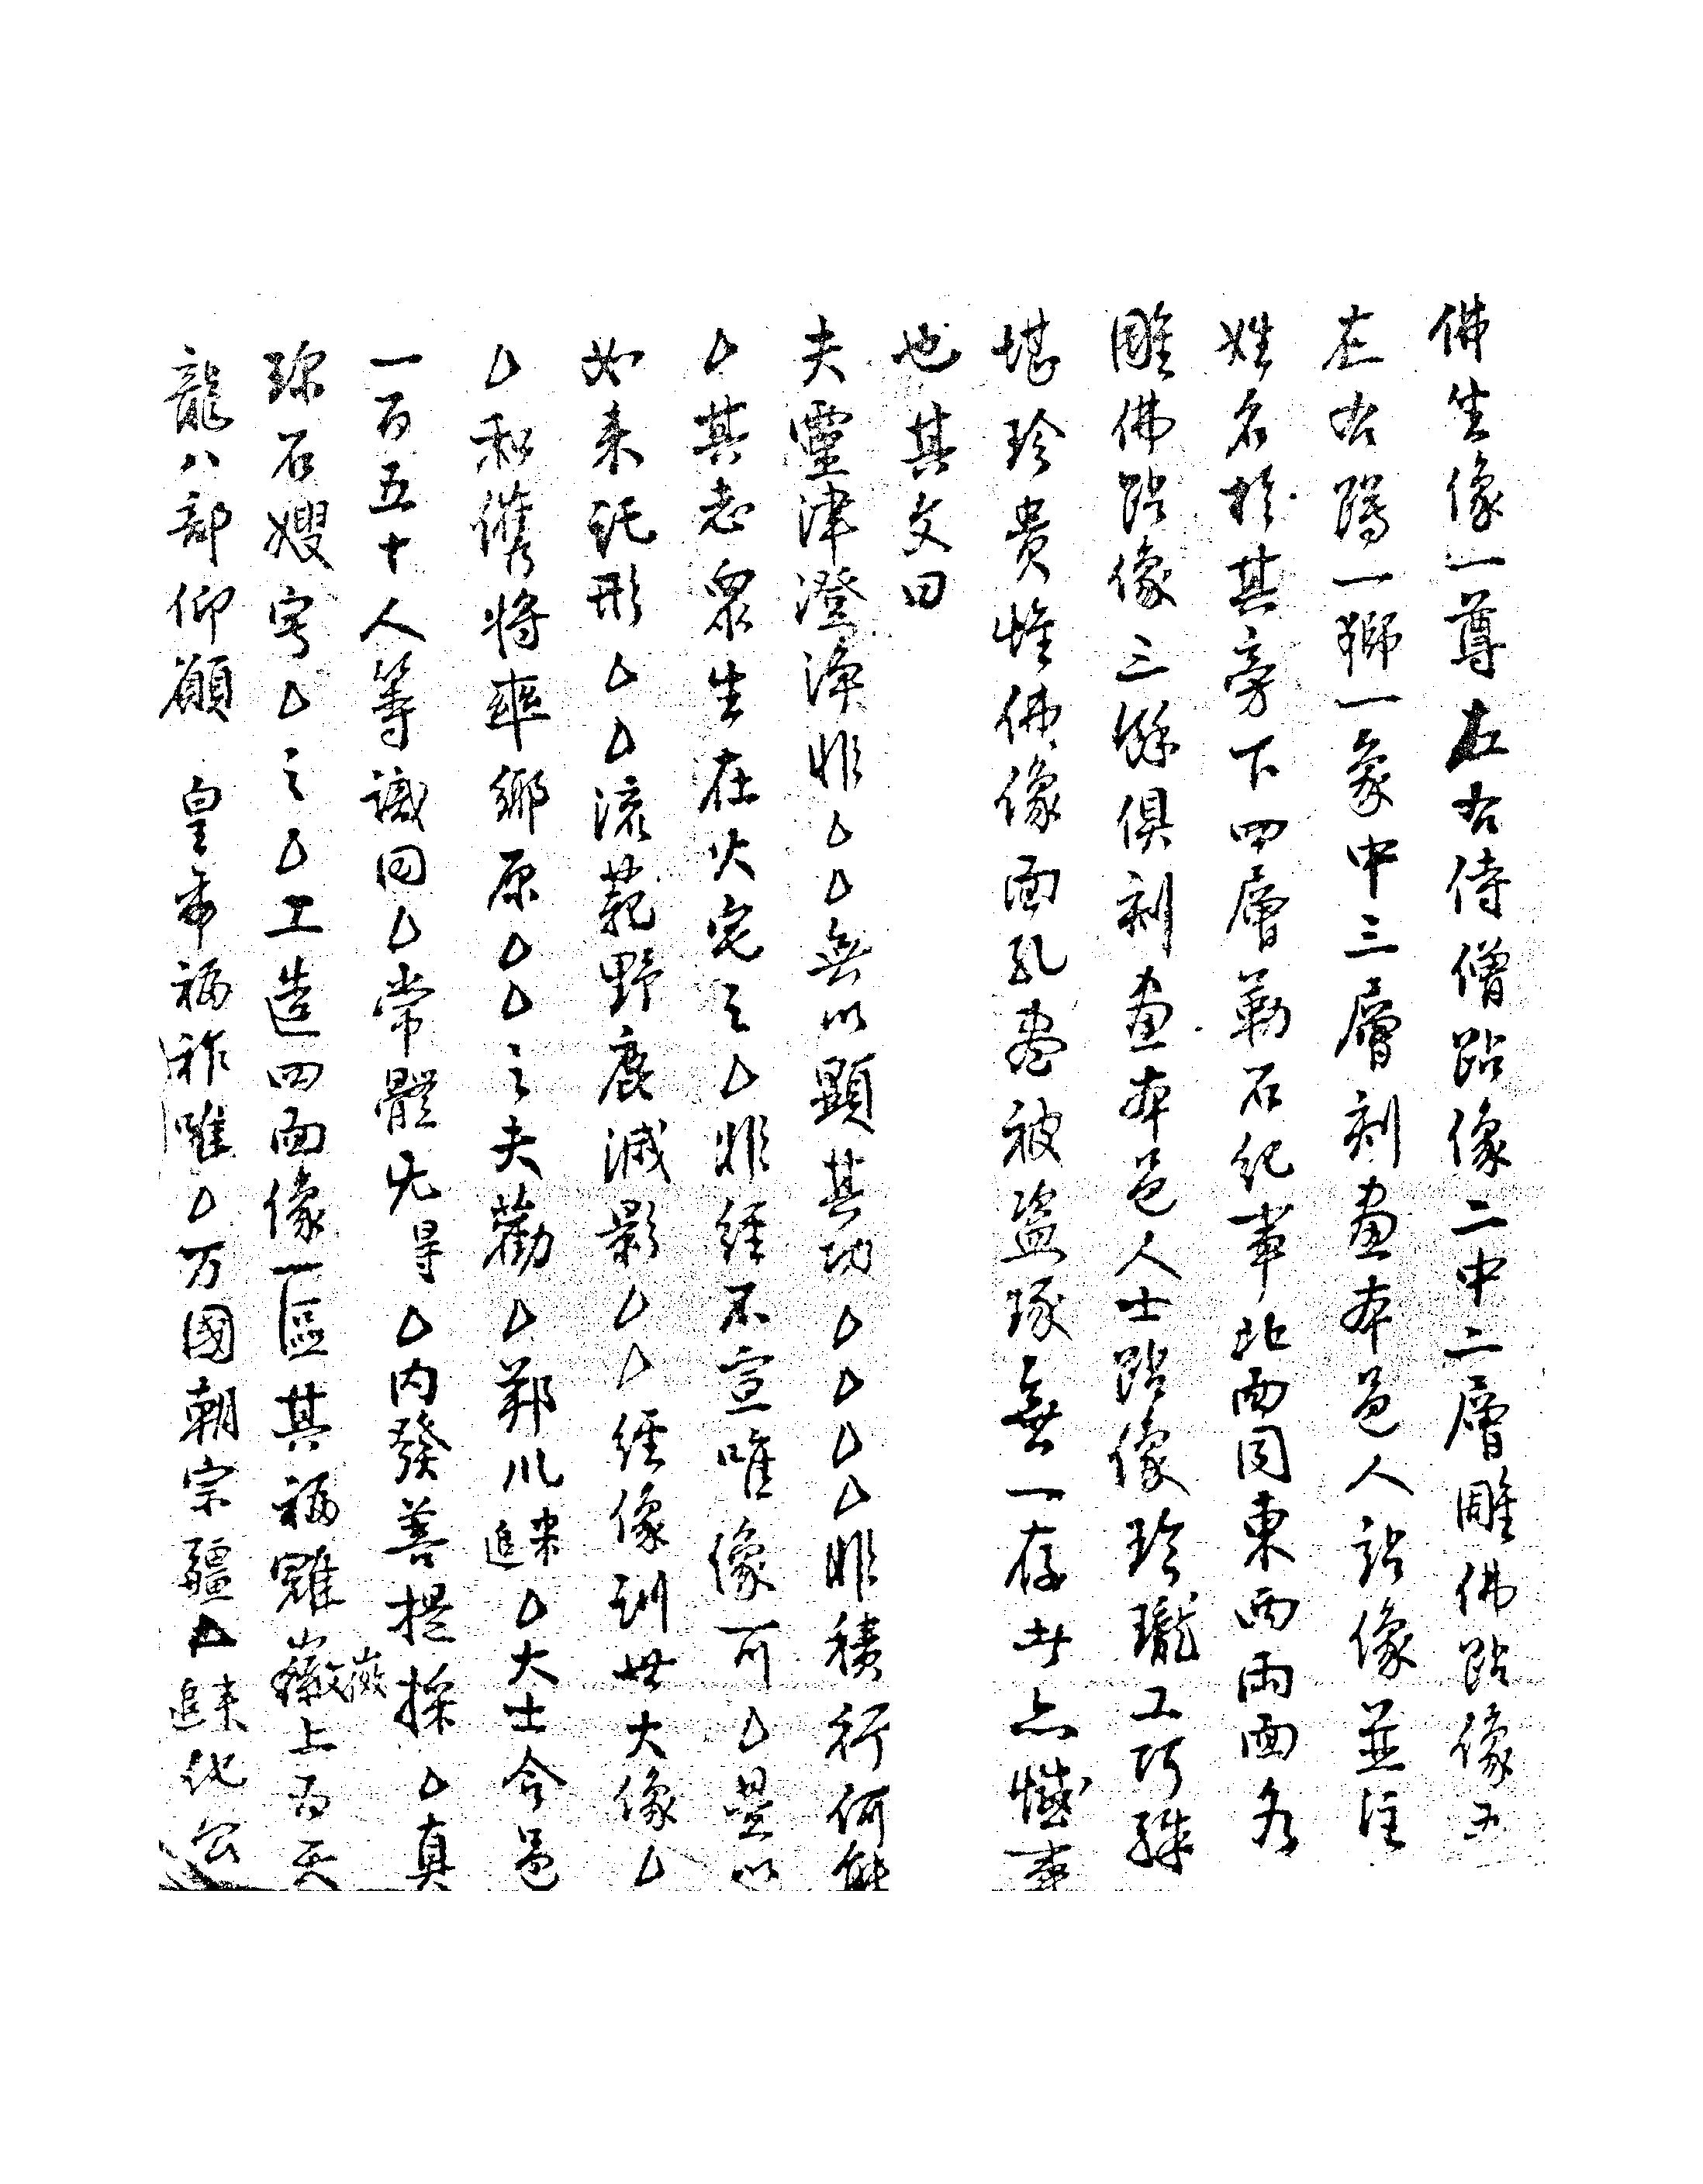 佛坐像一尊左右侍僧跕像二中二層雕佛跕像五
左右蹲一獅一象中三層刻画本邑人跕像並注
姓名於其旁下四層勒石紀事北面同東西兩面各
雕佛跕像三餘俱刻画本邑人士跕像玲瓏工巧殊
堪珍貴惟佛像面孔盡被盜琢無一存者亦憾事
也其文曰
夫靈津澄淨非△△無以顯其功△△△△非積行何能
△其志眾生在火宅之△非經不宣唯像可△是以
如来託形△△流範野鹿滅影△△經像訓世大像△
△和儁將率鄉原△△之夫勸△鄴川追来△大士合邑
一百五十人等識同△常體无尋△内發菩提採△真
珎石嫂寄△之△工造四面像一區其福雖巖上為天
龍八部仰願 皇帝福祚唯△万國朝宗疆△追来化公